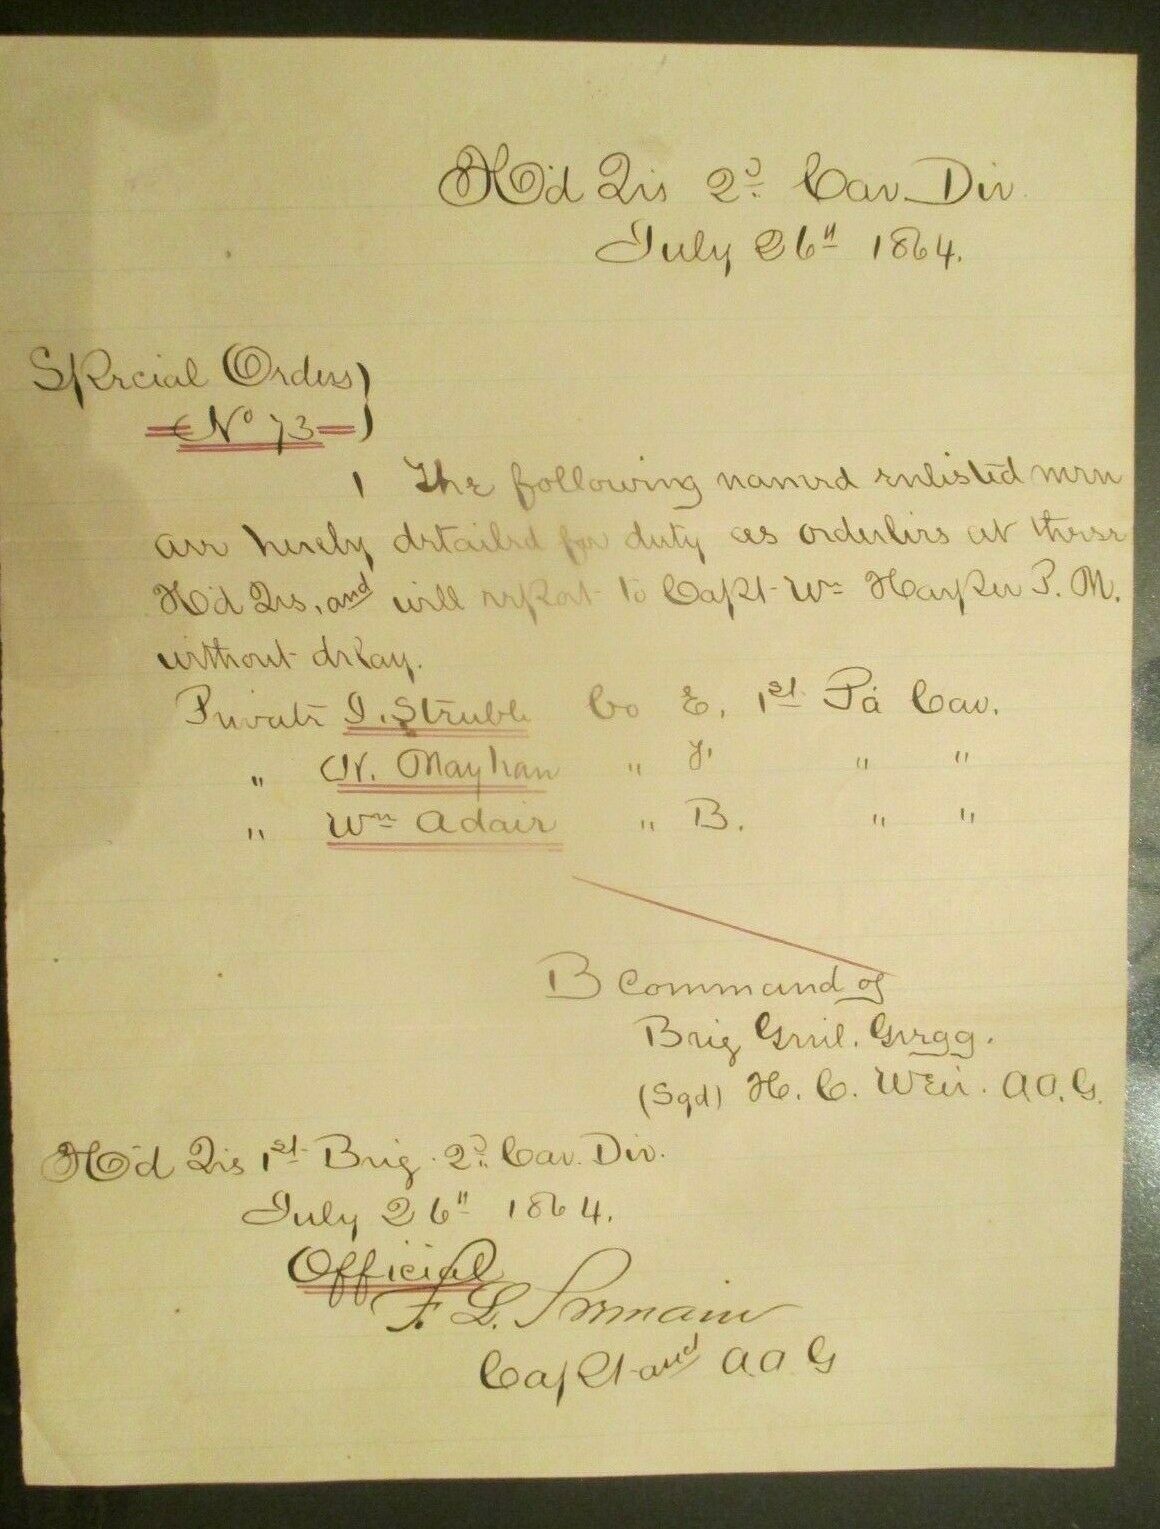 Hd Qrs 2d Cav. Div.
July 26" 1864.
Special Orders
No 73
1 The following named enlisted men
are hereby detailed for duty as orderlies at these
Hd Qrs, and will report to Capt Wm Harper P. M.
without delay.
Private I. Struble Co E, 1st Pa Cav.
" W. Mayhan " F " "
" Wm Adair " B. " "
B Command of
Brig Genl. Gregg.
(Sgd) H. C. Weir. A.A.G.
Hd Qrs 1st Brig. 2d Cav. Div.
July 26" 1864.
Official
F. L.
Capt and A A G